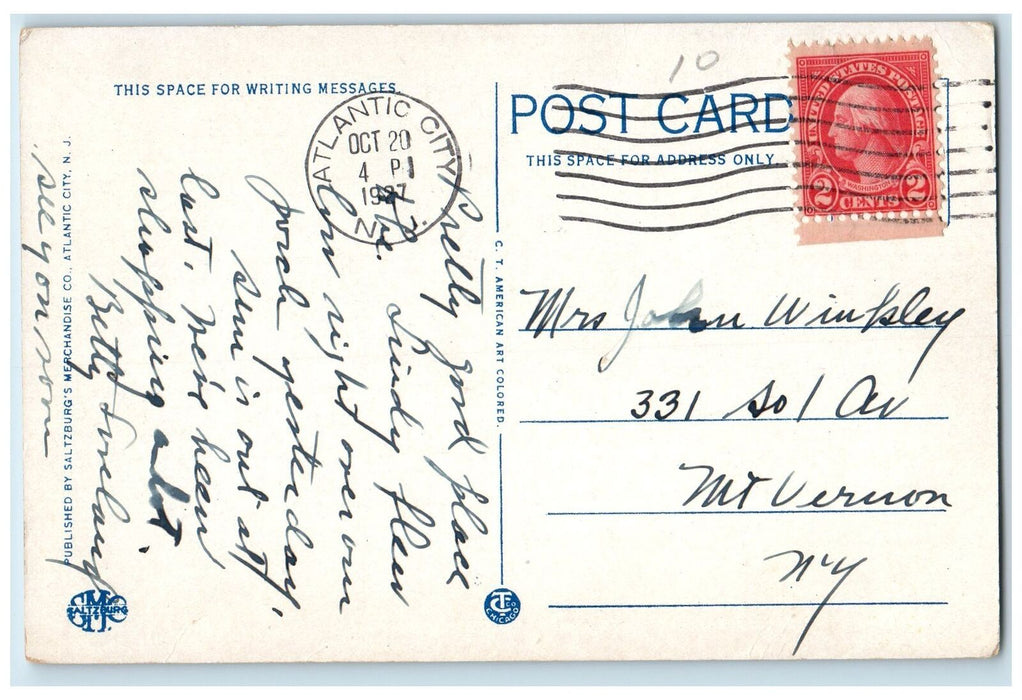 THIS SPACE FOR WRITING MESSAGES
POST CARD
THIS SPACE FOR ADDRESS ONLY
10
ATLANTIC CITY
OCT 20
4 P
1927
N.J.
UNITED STATES POSTAGE
WASHINGTON
2 CENTS 2
Pretty good place
here. Lindy flew
right over our
porch yesterday.
Sun is out at
last. We've been
shopping a lot.
Betty
see you soon
Mrs John Winkley
331 So 1 Av
Mt Vernon
NY
PUBLISHED BY SALTZBURG'S MERCHANDISE CO., ATLANTIC CITY, N. J.
C. T. AMERICAN ART COLORED.
SALTZBURG
CT CO CHICAGO